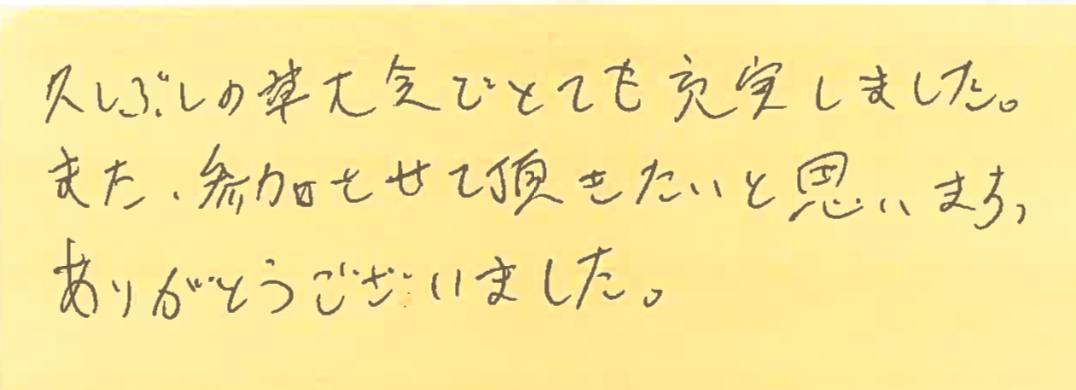 久しぶしの華大会でとても充実しました。
また、参加させて頂きたいと思います、
ありがとうございました。